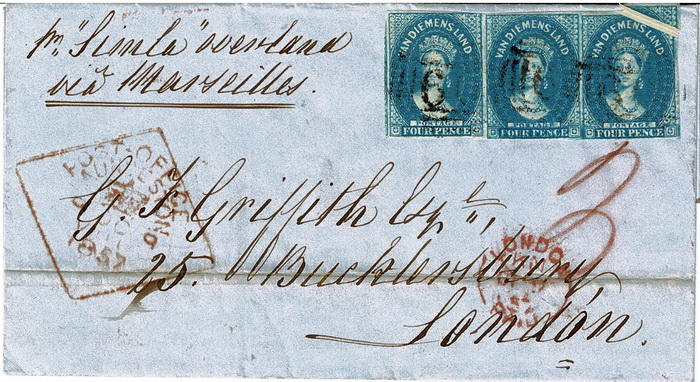 pr "Simla" overland
via Marseilles.
VAN DIEMENS LAND VAN DIEMENS LAND VAN DIEMENS LAND
POSTAGE POSTAGE POSTAGE
FOUR PENCE FOUR PENCE FOUR PENCE
POST-OFFICE
1857
G. F. Griffith Esqre,
25. Bucklersbury
LONDON
London